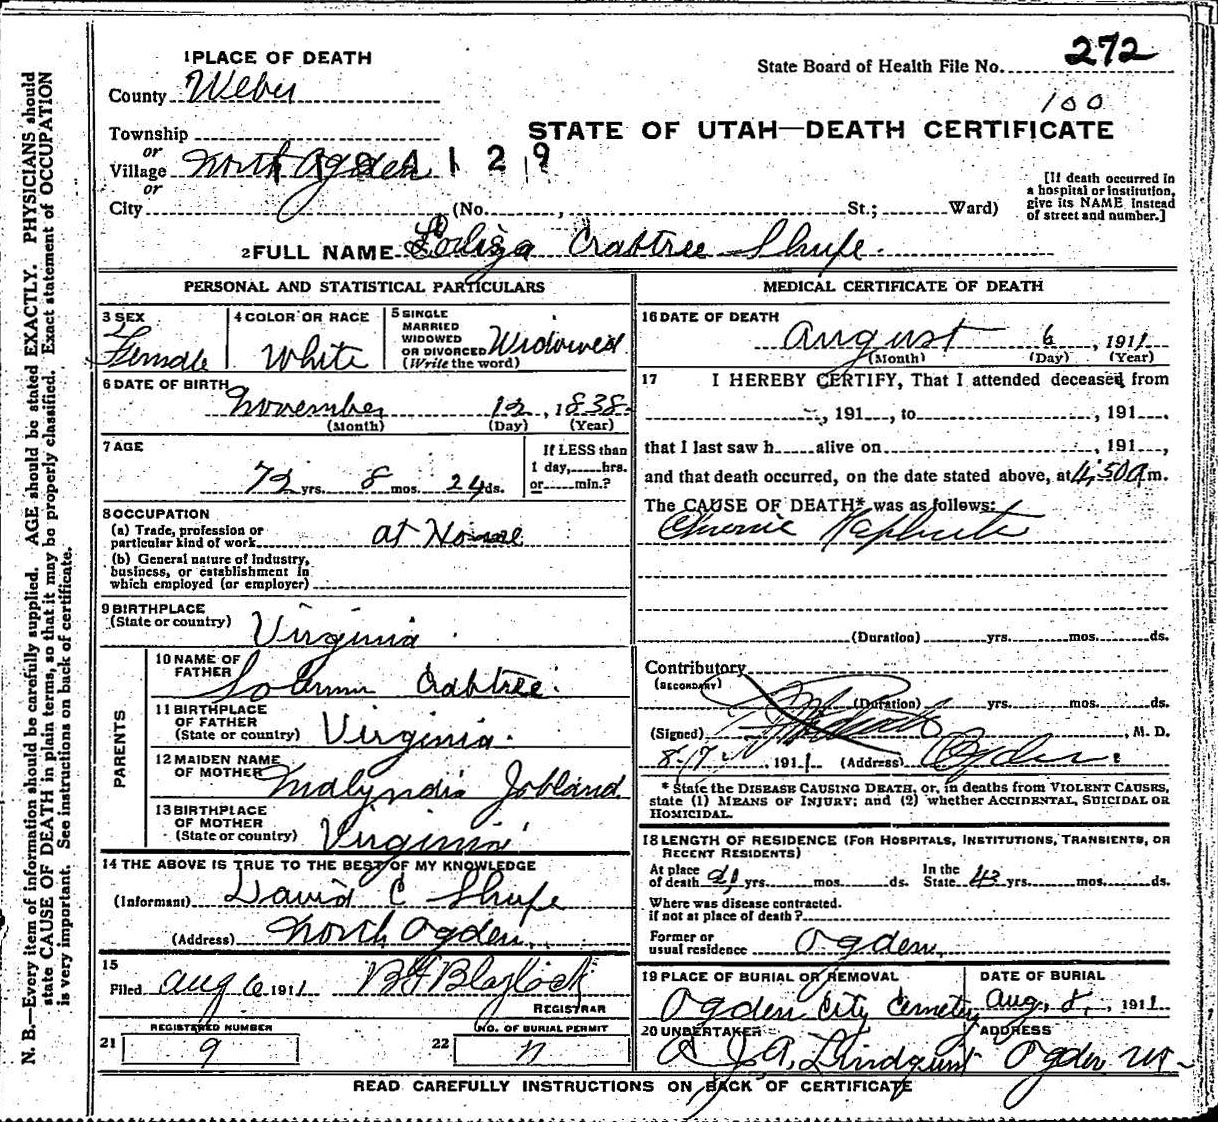 N. B.—Every item of information should be carefully supplied. AGE should be stated EXACTLY. PHYSICIANS should
state CAUSE OF DEATH in plain terms, so that it may be properly classified. Exact statement of OCCUPATION
is very important. See instructions on back of certificate.
1 PLACE OF DEATH
State Board of Health File No. 272
County Weber
100
Township
STATE OF UTAH—DEATH CERTIFICATE
or
Village North Ogden 1 2 9
or
[If death occurred in
a hospital or institution,
give its NAME instead
of street and number.]
City (No. , St.; Ward)
2 FULL NAME Louisa Crabtree Shupe.
PERSONAL AND STATISTICAL PARTICULARS
3 SEX
Female
4 COLOR OR RACE
White
5 SINGLE
MARRIED
WIDOWED
OR DIVORCED Widowed
(Write the word)
6 DATE OF BIRTH
November 12, 1838
(Month) (Day) (Year)
7 AGE
72 yrs. 8 mos. 24 ds.
If LESS than
1 day, hrs.
or min.?
8 OCCUPATION
(a) Trade, profession or
particular kind of work at Home
(b) General nature of industry,
business, or establishment in
which employed (or employer)
9 BIRTHPLACE
(State or country) Virginia
PARENTS
10 NAME OF
FATHER Crabtree.
11 BIRTHPLACE
OF FATHER
(State or country) Virginia.
12 MAIDEN NAME
OF MOTHER
13 BIRTHPLACE
OF MOTHER
(State or country) Virginia
14 THE ABOVE IS TRUE TO THE BEST OF MY KNOWLEDGE
(Informant) David C Shupe
(Address) North Ogden.
15
Filed Aug 6 1911 B F Blaylock
REGISTRAR
REGISTERED NUMBER
21 9
NO. OF BURIAL PERMIT
22
MEDICAL CERTIFICATE OF DEATH
16 DATE OF DEATH
August 6, 1911
(Month) (Day) (Year)
17 I HEREBY CERTIFY, That I attended deceased from
, 191 , to , 191 .
that I last saw h alive on , 191 ,
and that death occurred, on the date stated above, at 4,50 a m.
The CAUSE OF DEATH* was as follows:
Chronic Nephritis
(Duration) yrs. mos. ds.
Contributory
(SECONDARY)
(Duration) yrs. mos. ds.
(Signed) , M. D.
8-7 , 1911 (Address) Ogden
* State the DISEASE CAUSING DEATH, or, in deaths from VIOLENT CAUSES,
state (1) MEANS OF INJURY; and (2) whether ACCIDENTAL, SUICIDAL OR
HOMICIDAL.
18 LENGTH OF RESIDENCE (FOR HOSPITALS, INSTITUTIONS, TRANSIENTS, OR
RECENT RESIDENTS)
At place
of death yrs. mos. ds. In the
State 43 yrs. mos. ds.
Where was disease contracted.
if not at place of death?
Former or
usual residence Ogden,
19 PLACE OF BURIAL OR REMOVAL
Ogden City Cemetery
DATE OF BURIAL
Aug. 8, 1911
20 UNDERTAKER
J A. Lindquist
ADDRESS
Ogden Ut
READ CAREFULLY INSTRUCTIONS ON BACK OF CERTIFICATE